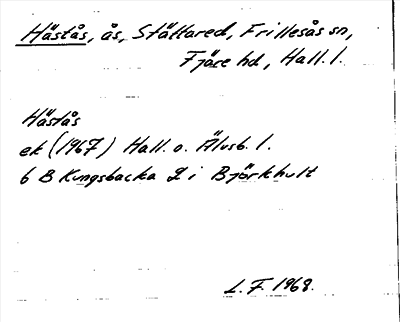 Håstås, ås, Stättared, Frillesås sn,
Fjäre hd, Hall. l.
Håstås
ek (1967) Hall. o. Älvsb. l.
6 B Kungsbacka 2 i Björkhult
L. F. 1968.